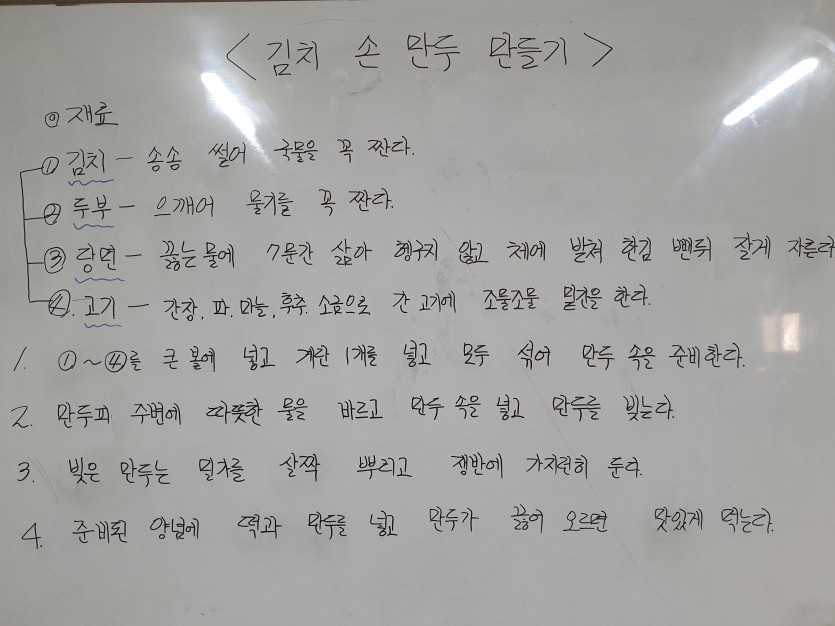 < 김치 손 만두 만들기 >
◎ 재료
① 김치 - 송송 썰어 국물을 꼭 짠다.
② 두부 - 으깨어 물기를 꼭 짠다.
③ 당면 - 끓는 물에 7분간 삶아 헹구지 않고 체에 밭쳐 한김 뺀뒤 잘게 자른다
④. 고기 - 간장, 파, 마늘, 후추, 소금으로 간 고기에 조물조물 밑간을 한다.
1. ①~④를 큰 볼에 넣고 계란 1개를 넣고 모두 섞어 만두 속을 준비한다.
2. 만두피 주변에 따뜻한 물을 바르고 만두 속을 넣고 만두를 빚는다.
3. 빚은 만두는 밀가를 살짝 뿌리고 쟁반에 가지런히 둔다.
4. 준비된 양념에 떡과 만두를 넣고 만두가 끓어 오르면 맛있게 먹는다.